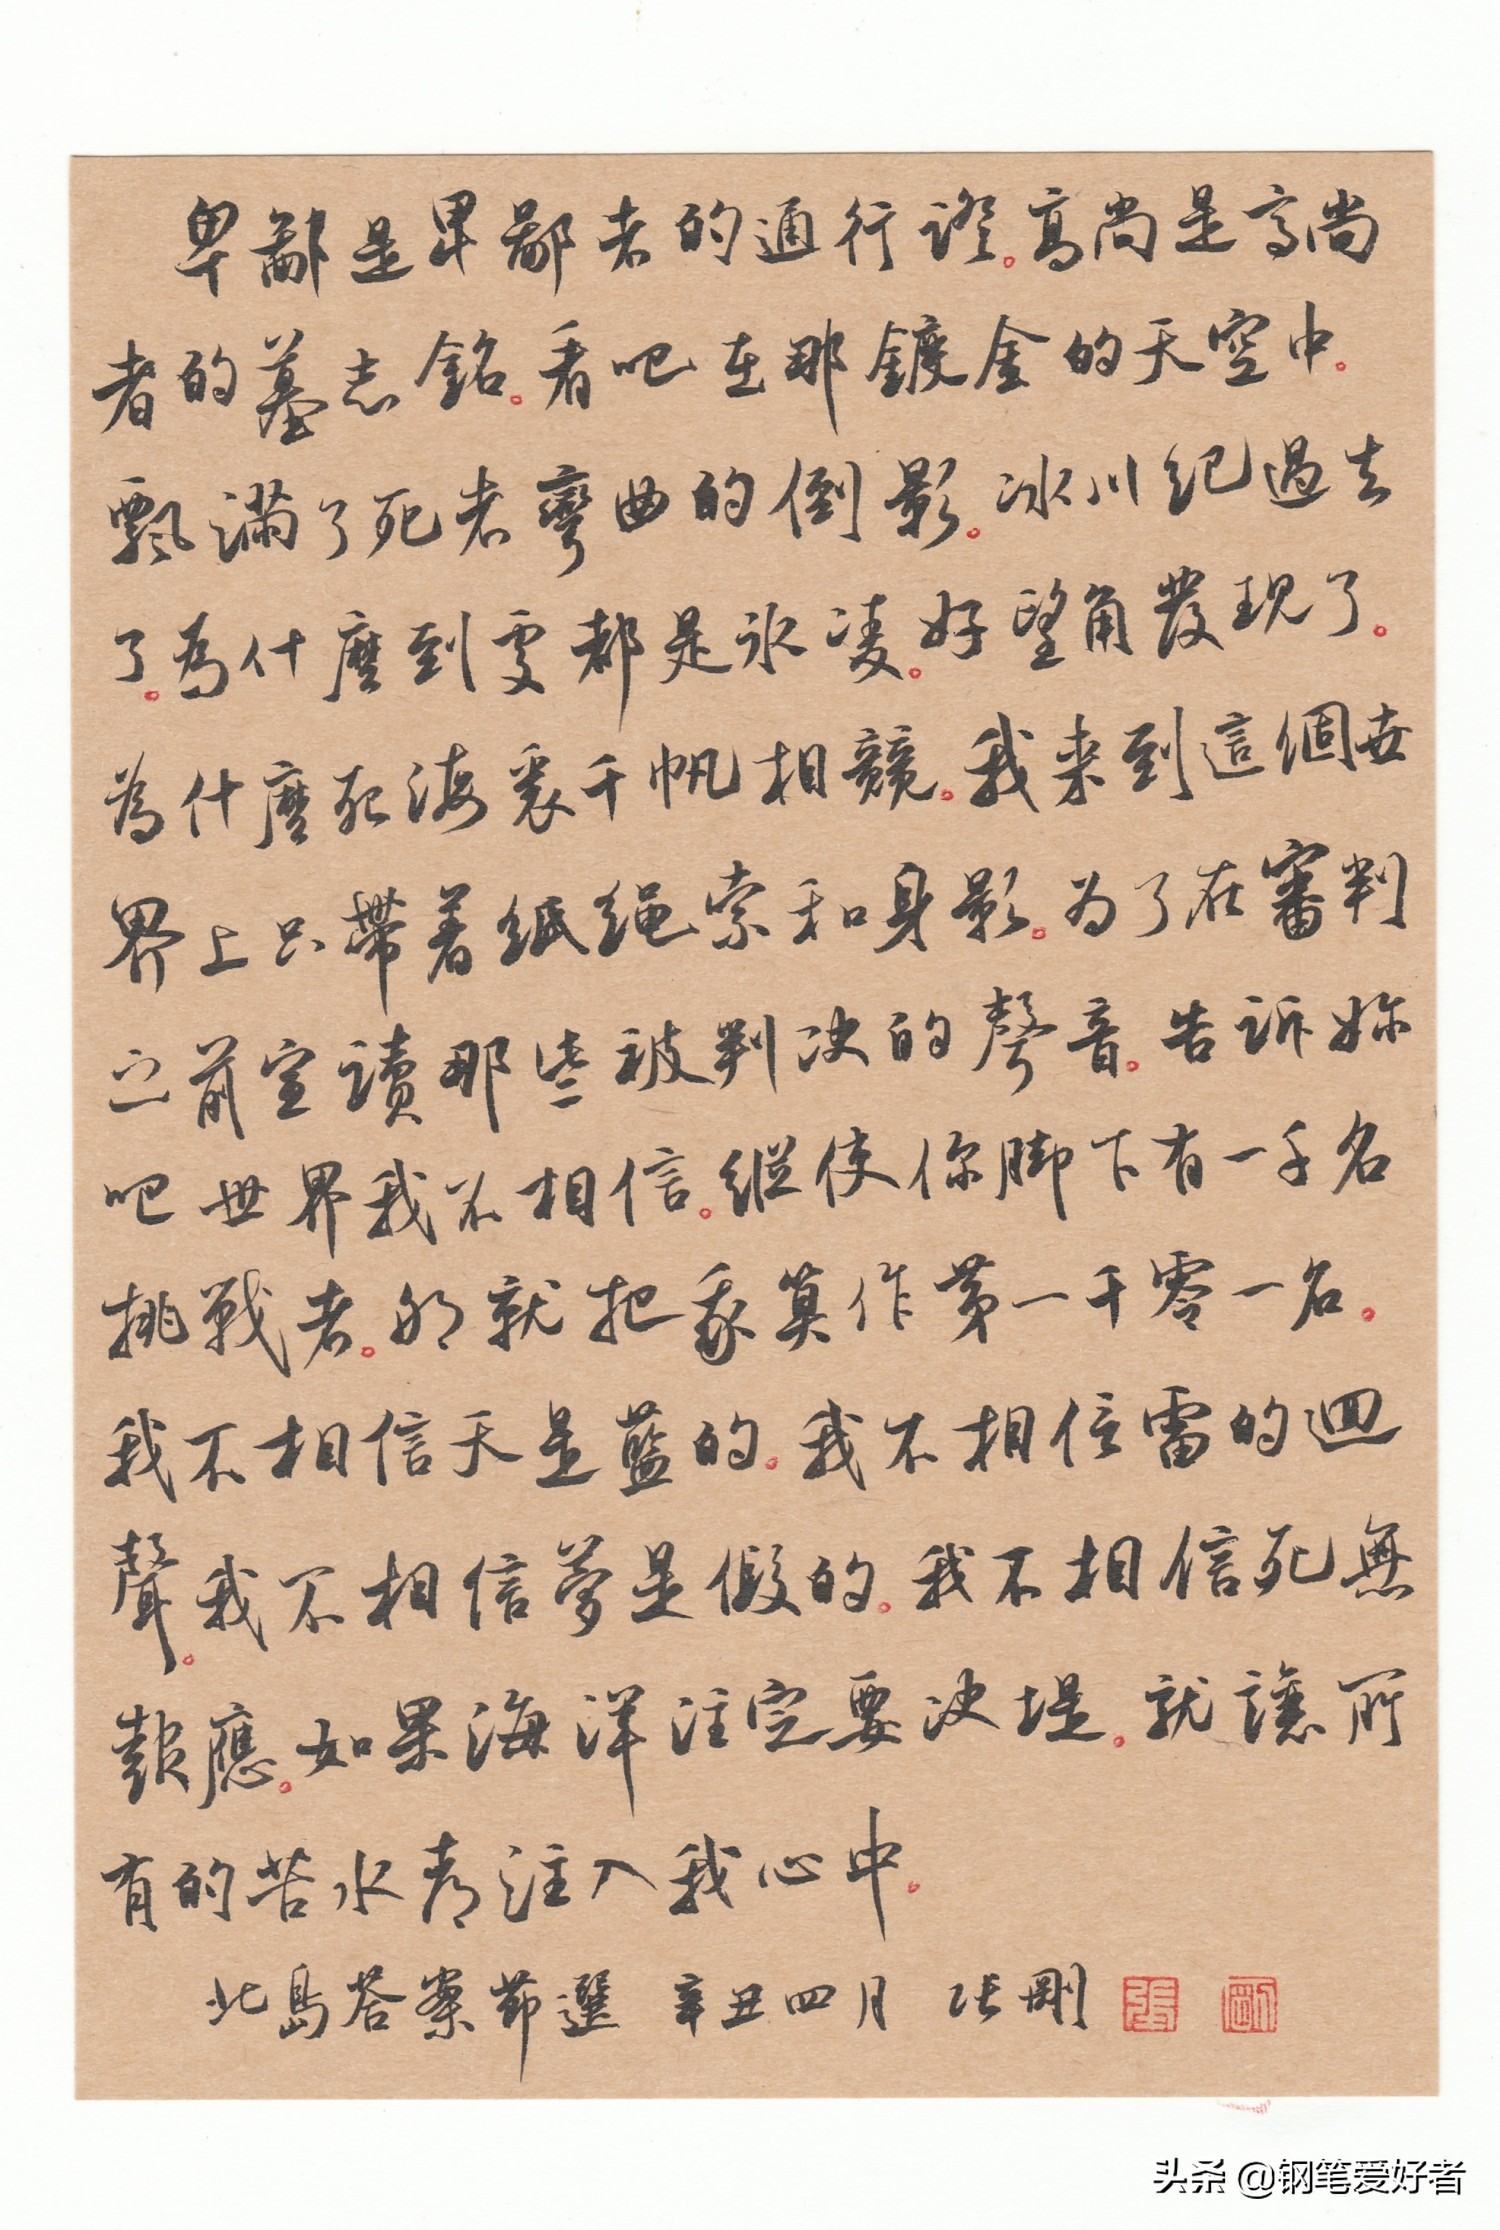 卑鄙是卑鄙者的通行證。高尚是高尚
者的墓志銘。看吧在那鍍金的天空中。
飄滿了死者彎曲的倒影。冰川紀過去
了。為什麼到處都是冰凌。好望角發現了。
為什麼死海裏千帆相競。我來到這個世
界上只帶着紙繩索和身影。为了在審判
之前宣讀那些被判决的聲音。告訴你
吧世界我不相信。縱使你脚下有一千名
挑戰者。那就把我算作第一千零一名。
我不相信天是藍的。我不相信雷的迴
聲。我不相信夢是假的。我不相信死無
報應。如果海洋注定要决堤。就讓所
有的苦水都注入我心中。
北島答案節選 辛丑四月 张剛
头条 @钢笔爱好者